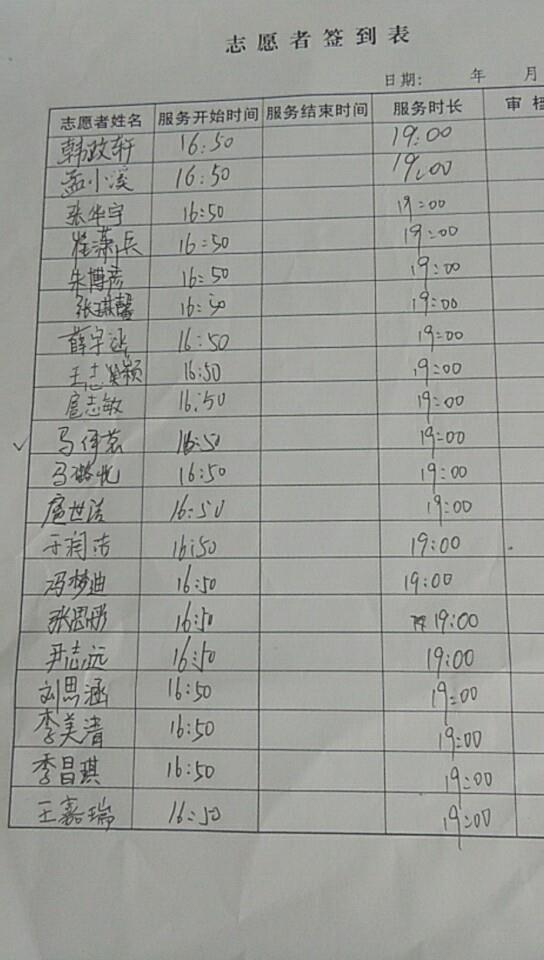 志愿者签到表
日期: 年 月
志愿者姓名 服务开始时间 服务结束时间 服务时长 审
韩政轩 16:50 19:00
孟小溪 16:50 19:00
张华宇 16:50 19:00
崔潇兵 16:50 19:00
朱博彦 16:50 19:00
张琪馨 16:50 19:00
薛宇涵 16:50 19:00
王志颖 16:50 19:00
扈志敏 16:50 19:00
马伊茗 16:50 19:00
马悦 16:50 19:00
扈世洁 16:50 19:00
于润洁 16:50 19:00
冯梦迪 16:50 19:00
张思彤 16:50 19:00
尹志远 16:50 19:00
刘思涵 16:50 19:00
李美清 16:50 19:00
李昌琪 16:50 19:00
王嘉瑞 16:50 19:00